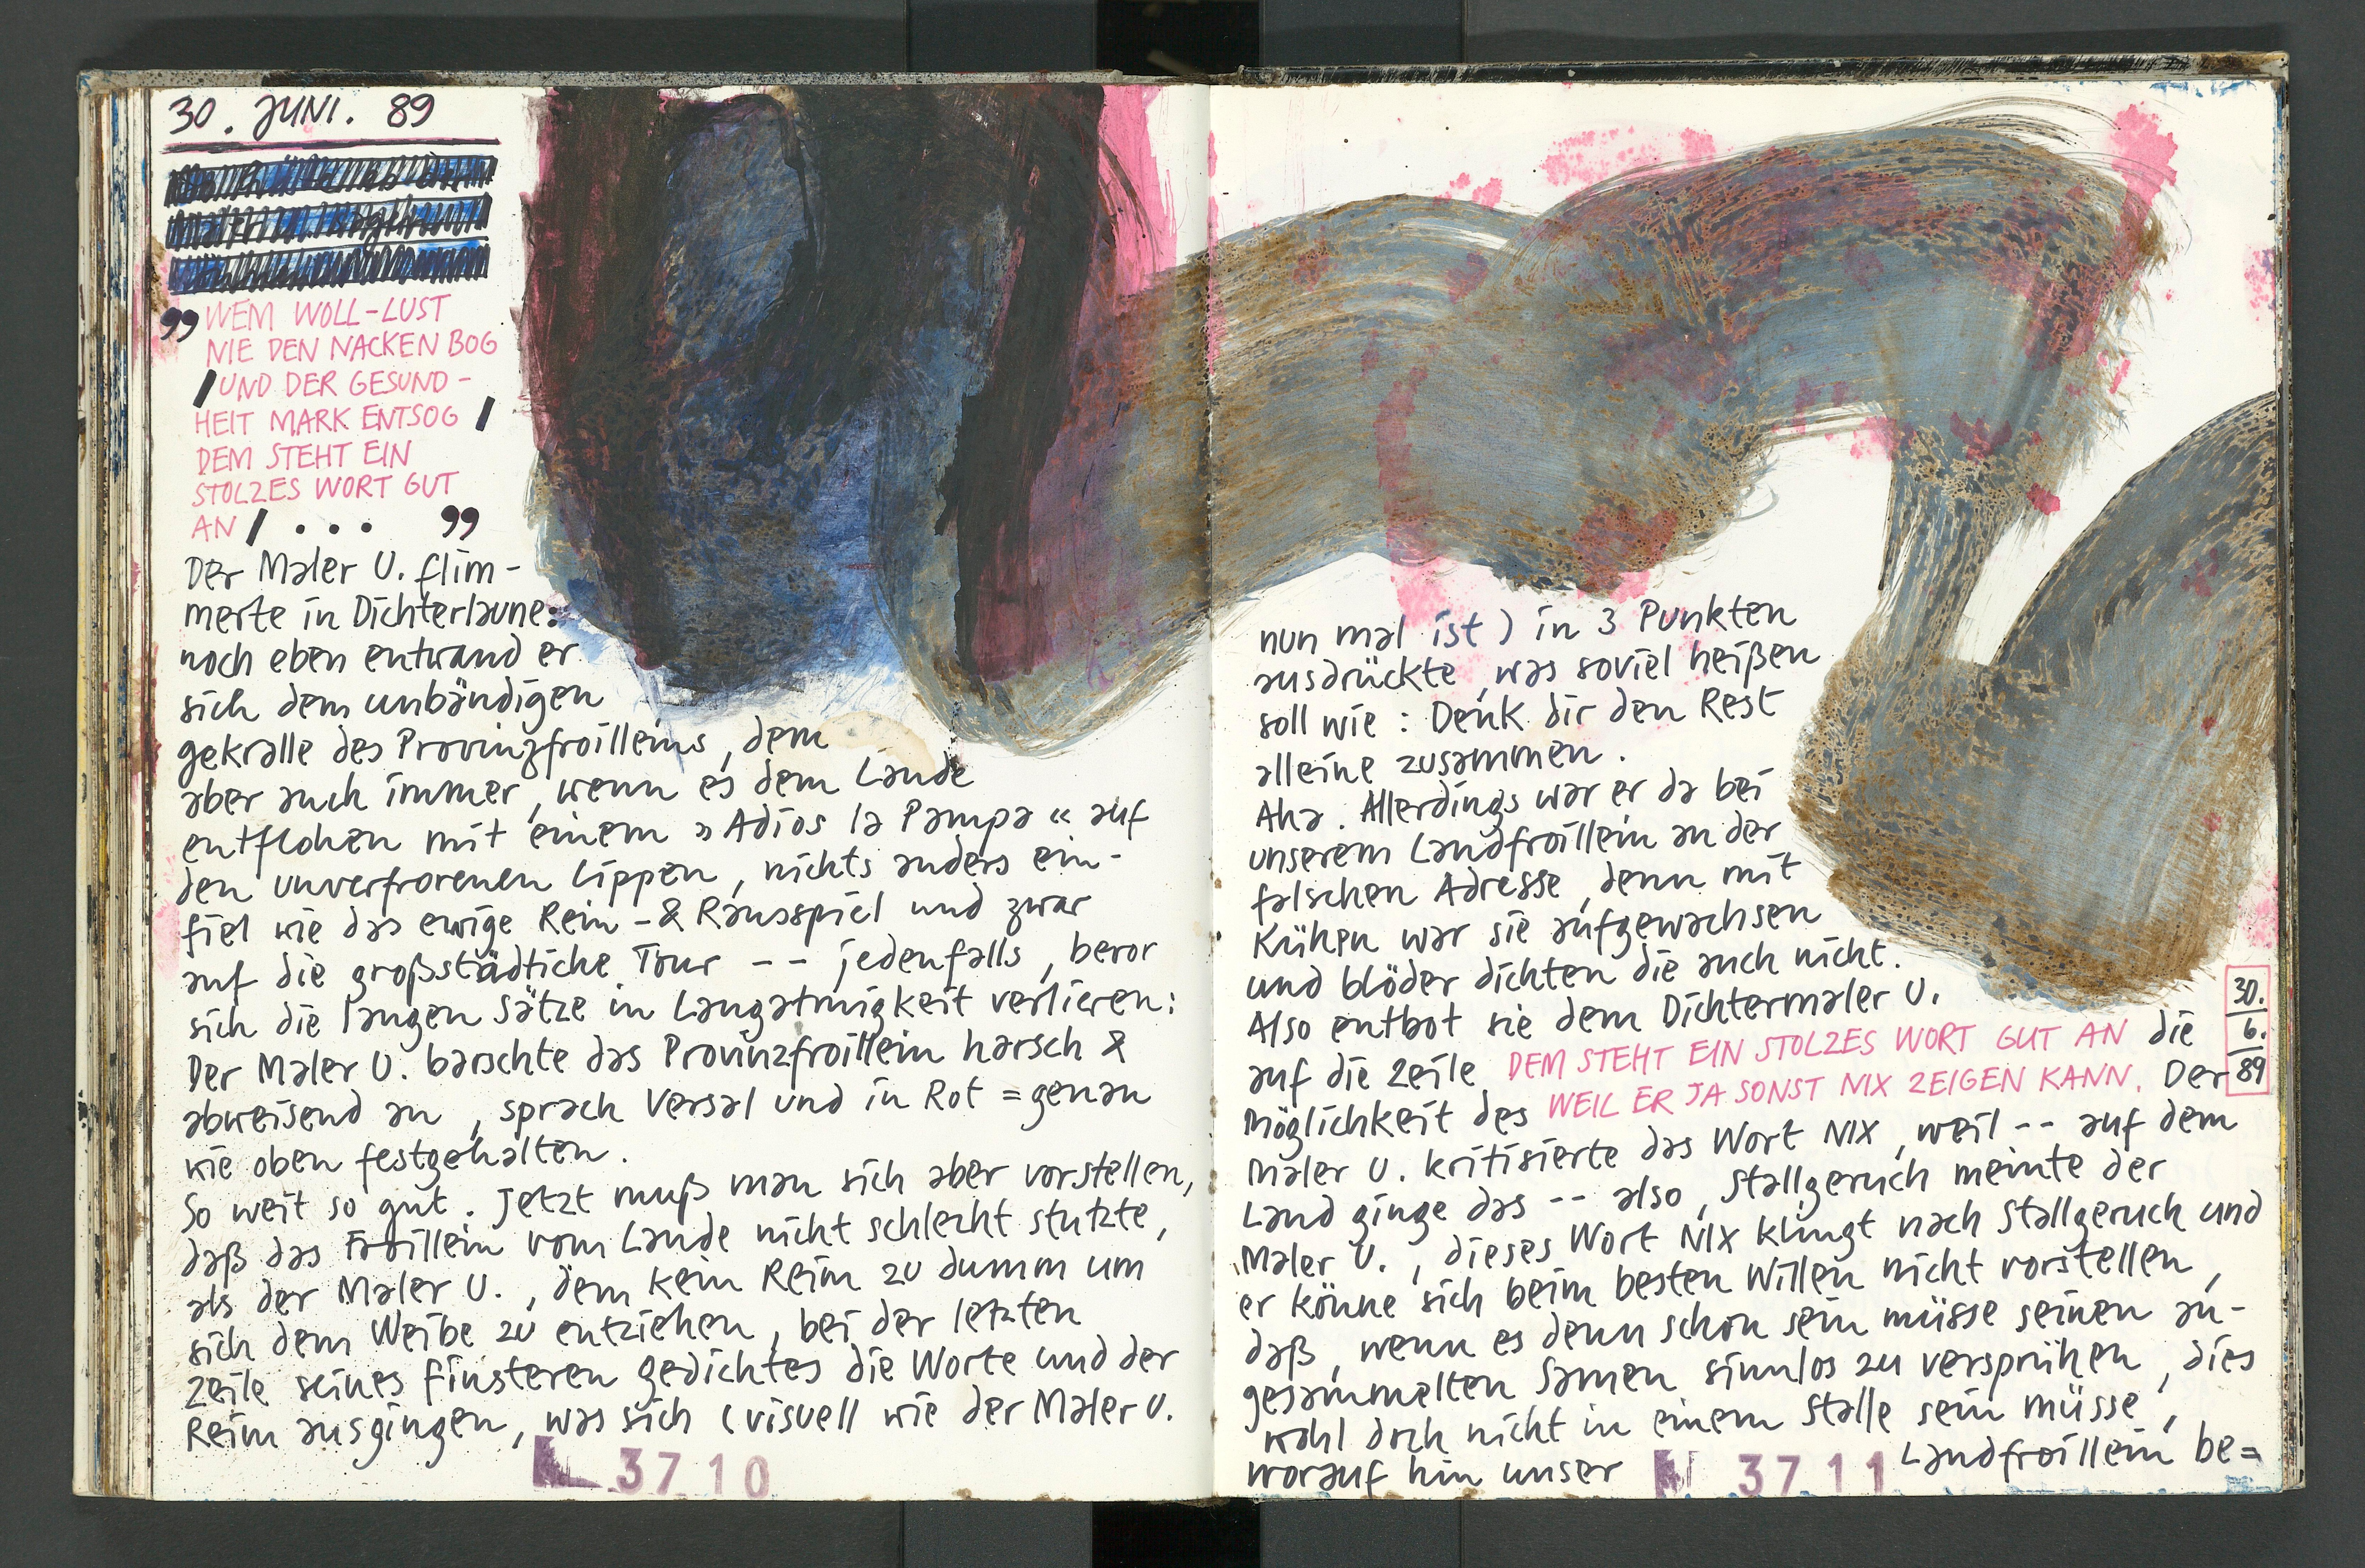 30. JUNI. 89
„WEM WOLL-LUST
NIE DEN NACKEN BOG
/ UND DER GESUND-
HEIT MARK ENTSOG /
DEM STEHT EIN
STOLZES WORT GUT
AN / ... „
Der Maler U. flim-
merte in Dichterlaune:
noch eben entwand er
sich dem unbändigen
gekralle des Provinzfroilleins, dem
aber auch immer, wenn es dem Lande
entflohen mit einem »Adios la Pampa« auf
den unverfrorenen Lippen, nichts anders ein-
fiel wie das ewige Rein-& Rausspiel und zwar
auf die großstädtiche Tour -- jedenfalls, bevor
sich die langen Sätze in Langatmigkeit verlieren:
Der Maler U. barschte das Provinzfroillein harsch &
abweisend an, sprach Versal und in Rot = genau
wie oben festgehalten.
So weit so gut. Jetzt muß man sich aber vorstellen,
daß das Froillein vom Lande nicht schlecht stutzte,
als der Maler U., dem kein Reim zu dumm um
sich dem Weibe zu entziehen, bei der letzten
Zeile seines finsteren gedichtes die Worte und der
Reim ausgingen, was sich (visuell wie der Maler U.
37 10
nun mal ist) in 3 Punkten
ausdrückte, was soviel heißen
soll wie: Denk dir den Rest
alleine zusammen.
Aha. Allerdings war er da bei
unserem Landfroillein an der
falschen Adresse, denn mit
Kühen war sie aufgewachsen
und blöder dichten die auch nicht.
Also entbot sie dem Dichtermaler U.
auf die Zeile DEM STEHT EIN STOLZES WORT GUT AN die
Möglichkeit des WEIL ER JA SONST NIX ZEIGEN KANN. Der
30.
6.
89
Maler U. kritisierte das Wort NIX, weil -- auf dem
Land ginge das -- also, Stallgeruch meinte der
Maler U., dieses Wort NIX klingt nach Stallgeruch und
er könne sich beim besten Willen nicht vorstellen,
daß, wenn es denn schon sein müsse seinen an-
gesammelten Samen sinnlos zu versprühen, dies
wohl doch nicht in einem Stalle sein müsse,
worauf hin unser Landfroillein be=
37 11